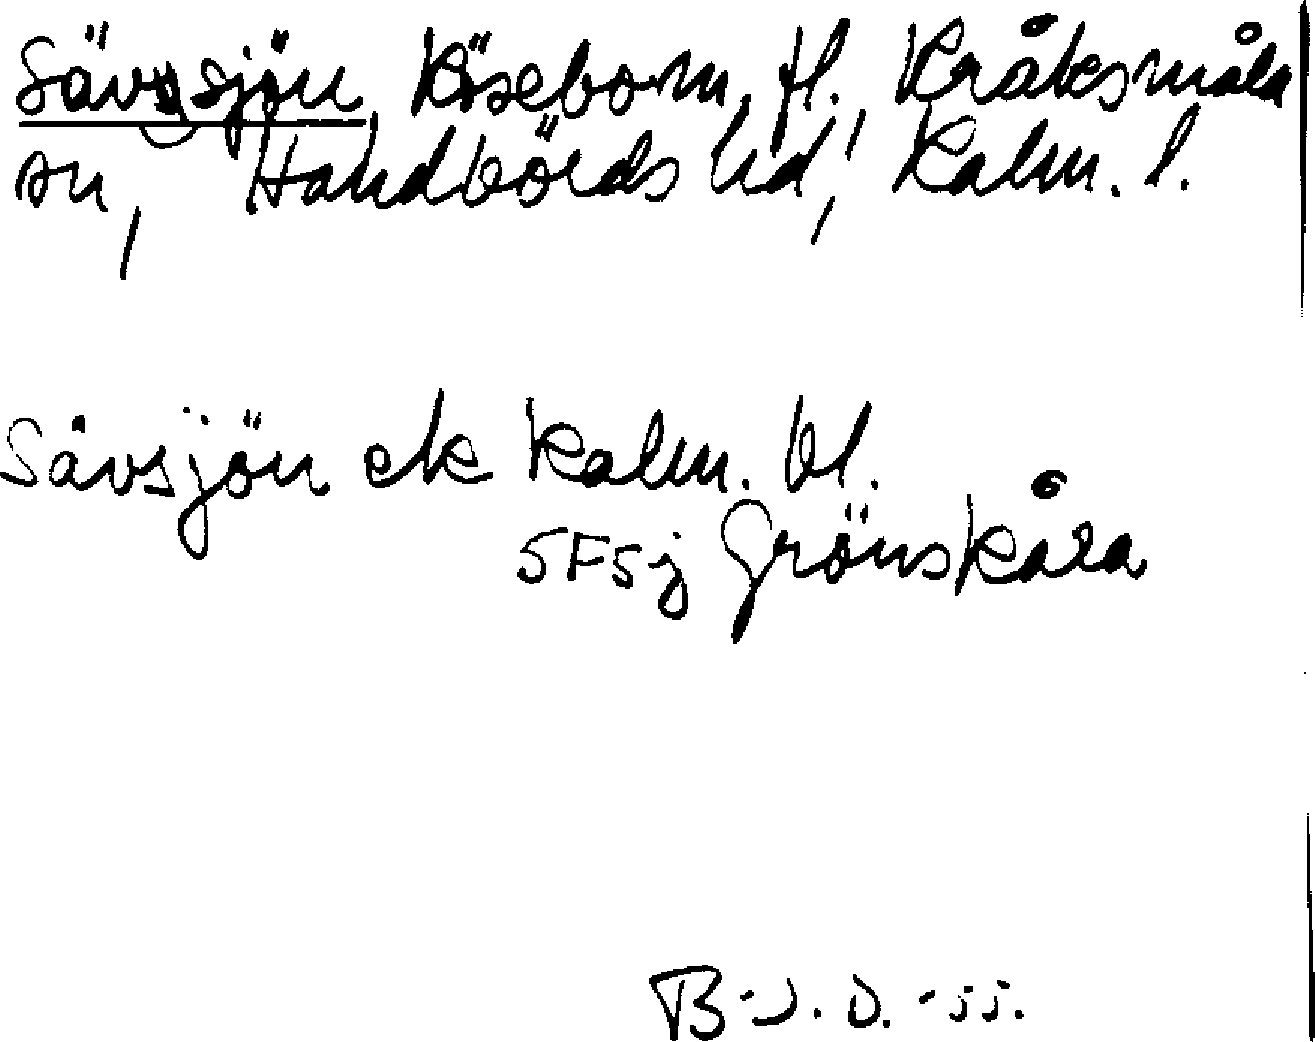 Sävsjön, Köseborn, fl., Kråksmåla
sn, Handbörds hd, Kalm. l.
Sävsjön ek Kalm. bl.
5F5j Grönskåra
B-J. D. -55.